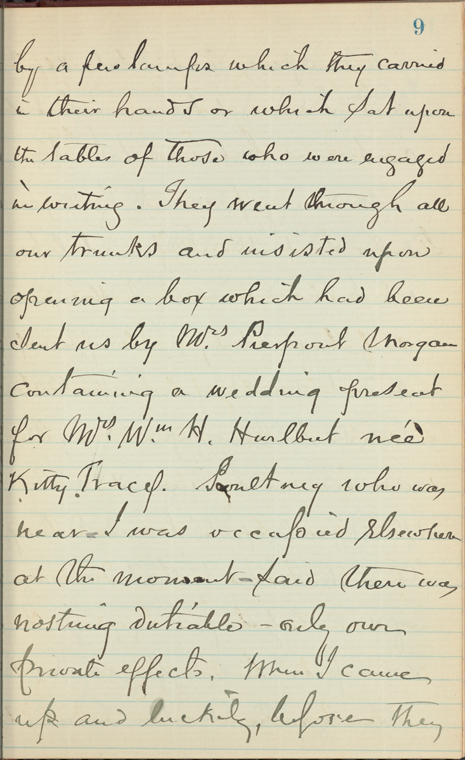 9
by a few lamps which they carried
in their hands or which sat upon
the tables of those who were engaged
in writing. They went through all
our trunks and insisted upon
opening a box which had been
sent us by Mrs Pierpont Morgan
containing a wedding present
for Mrs. Wm H. Hurlbut neé
Kitty Tracy. who was
near - I was occupied elsewhere
at the moment - said there was
nothing dutiable - only our
private effects. When I came
up and luckily, before they